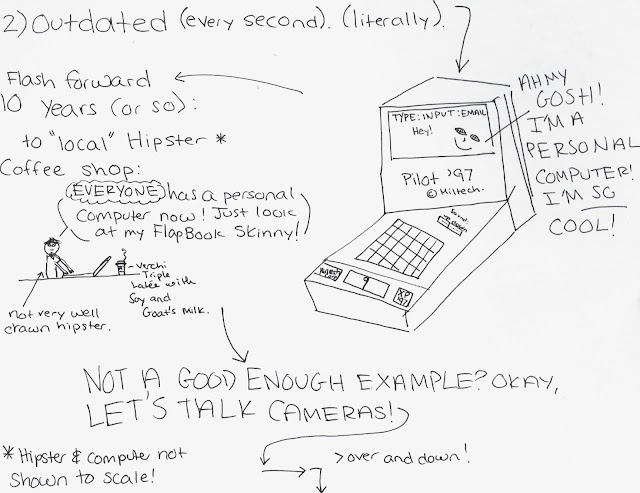 2) Outdated (every second). (literally).
AH MY
GOSH!
I'M A
PERSONAL
COMPUTER!
I'M SO
COOL!
TYPE:INPUT:EMAIL
Hey!
Pilot '97
© Hiltech.
9
XP
97
Flash forward
10 Years (or so):
to "local" Hipster *
Coffee shop:
EVERYONE has a personal
computer now! Just look
at my FlapBook Skinny!
not very well
drawn hipster.
- Venchi
Triple
Latée with
Soy and
Goat's Milk.
NOT A GOOD ENOUGH EXAMPLE? OKAY,
LET'S TALK CAMERAS!
* Hipster & Computer not
shown to scale!
> over and down!